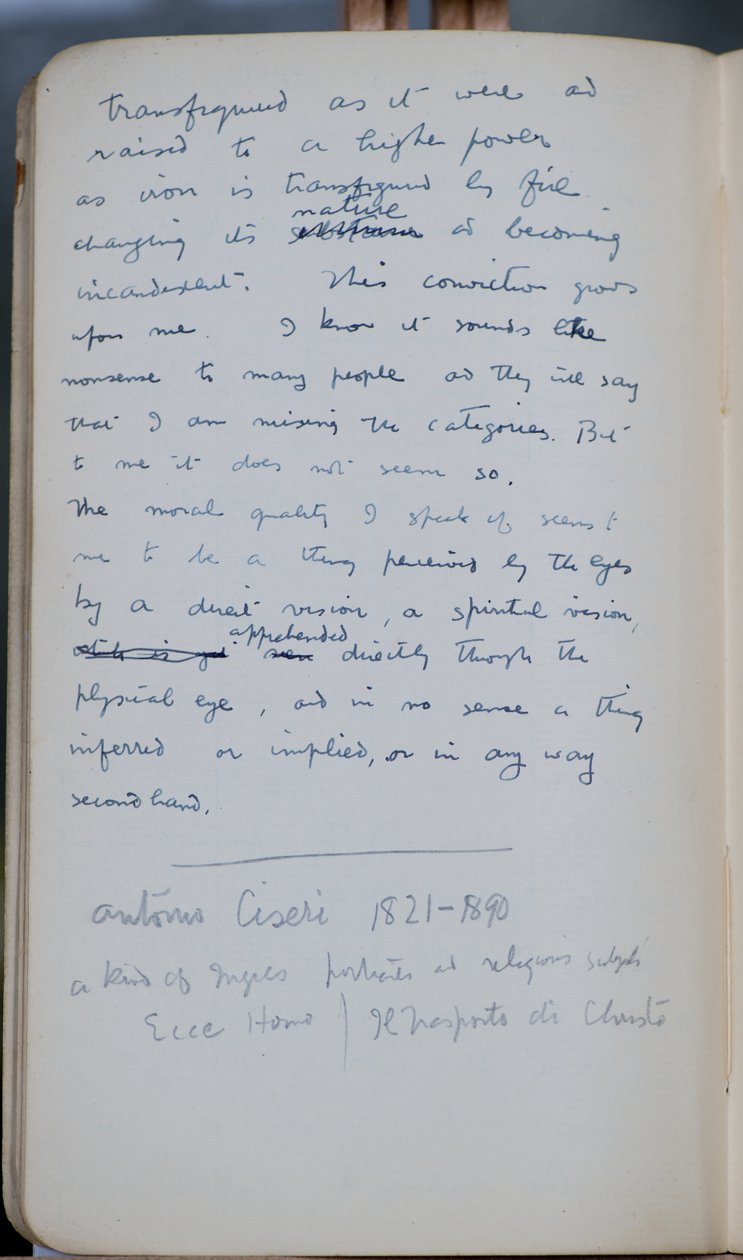 transfigured as it were and
raised to a higher power
as iron is transfigured by fire
nature
changing its substance and becoming
incandescent. This conviction grows
upon me. I know it sounds like
nonsense to many people and they will say
that I am mixing the categories. But
to me it does not seem so.
The moral quality I speak of seems to
me to be a thing perceived by the eyes
by a direct vision, a spiritual vision,
apprehended
which is yet seen directly through the
physical eye, and in no sense a thing
inferred or implied, or in any way
second hand.
Antonio Ciseri 1821-1890
a kind of Ingres portraits and religious subjects
Ecce Homo | Il Trasporto di Christo